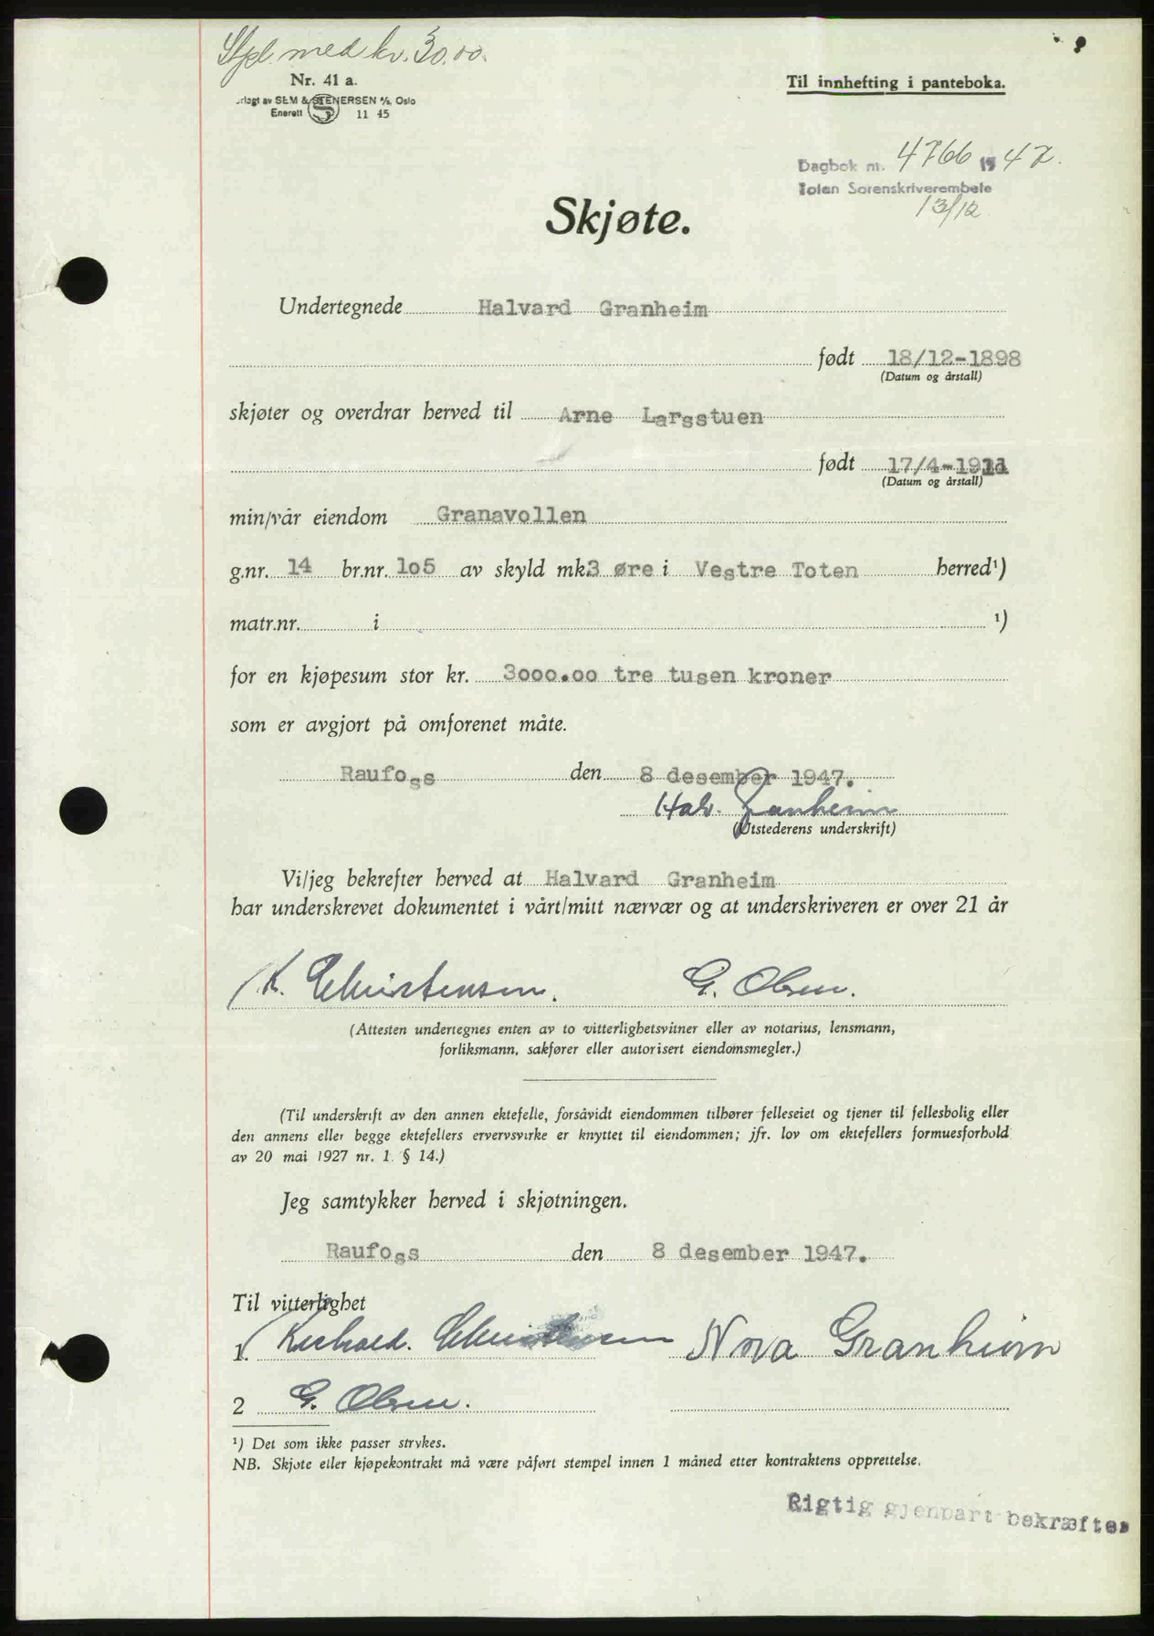 Stpl. med kr. 30.00.
Nr. 41 a.
Til innhefting i panteboka.
rlagt av SEM & STENERSEN A/S, Oslo
Enerett S 11 45
Dagbok nr. 4766 1947.
Toten Sorenskriverembete
13/12
Skjøte.
Undertegnede Halvard Granheim
født 18/12-1898
(Datum og årstall)
skjøter og overdrar herved til Arne Larsstuen
født 17/4-1911
(Datum og årstall)
min/vår eiendom Granavollen
g.nr. 14 br.nr. 1o5 av skyld mk. 3 øre i Vestre Toten herred¹)
matr.nr. i ¹)
for en kjøpesum stor kr. 3ooo.oo tre tusen kroner
som er avgjort på omforenet måte.
Raufoss den 8 desember 1947.
Halv. Granheim
(Utstederens underskrift)
Vi/jeg bekrefter herved at Halvard Granheim
har underskrevet dokumentet i vårt/mitt nærvær og at underskriveren er over 21 år
K. Christensen. G. Olsen.
(Attesten undertegnes enten av to vitterlighetsvitner eller av notarius, lensmann,
forliksmann, sakfører eller autorisert eiendomsmegler.)
(Til underskrift av den annen ektefelle, forsåvidt eiendommen tilhører felleseiet og tjener til fellesbolig eller
den annens eller begge ektefellers ervervsvirke er knyttet til eiendommen; jfr. lov om ektefellers formuesforhold
av 20 mai 1927 nr. 1 § 14.)
Jeg samtykker herved i skjøtningen.
Raufoss den 8 desember 1947.
Til vitterlighet
1. Christensen Nora Granheim
2 G. Olsen.
¹) Det som ikke passer strykes.
NB. Skjøte eller kjøpekontrakt må være påført stempel innen 1 måned etter kontraktens opprettelse.
Rigtig gjenpart bekræftes